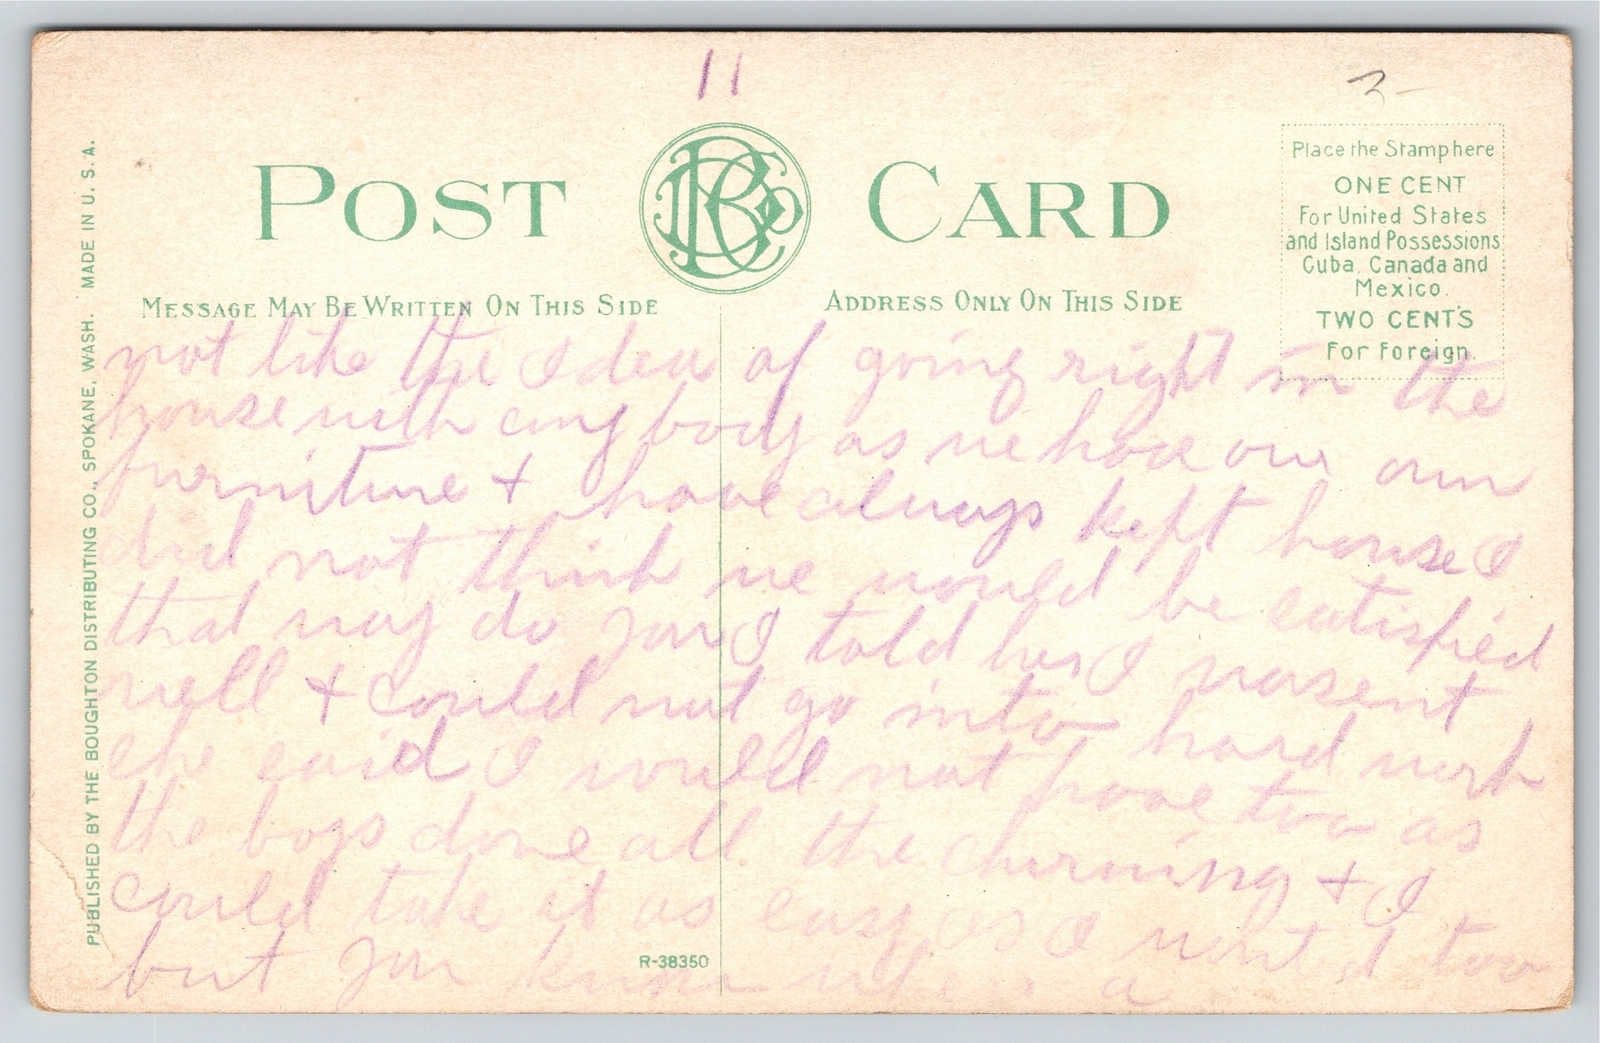 11
3-
POST CARD
MESSAGE MAY BE WRITTEN ON THIS SIDE
ADDRESS ONLY ON THIS SIDE
Place the Stamp here
ONE CENT
For United States
and Island Possessions
Cuba, Canada and
Mexico.
TWO CENTS
For Foreign.
PUBLISHED BY THE BOUGHTON DISTRIBUTING CO., SPOKANE, WASH. MADE IN U. S. A.
not like the Idea of going right in the
house with any body as we have our own
furniture + have always kept house I
did not think we would be satisfied
that way do you I told her I wasent
well + could not go into hard work
she said I would not have too as
the boys done all the churning + I
could take it as easy as I wanted too
but you know when a
R-38350